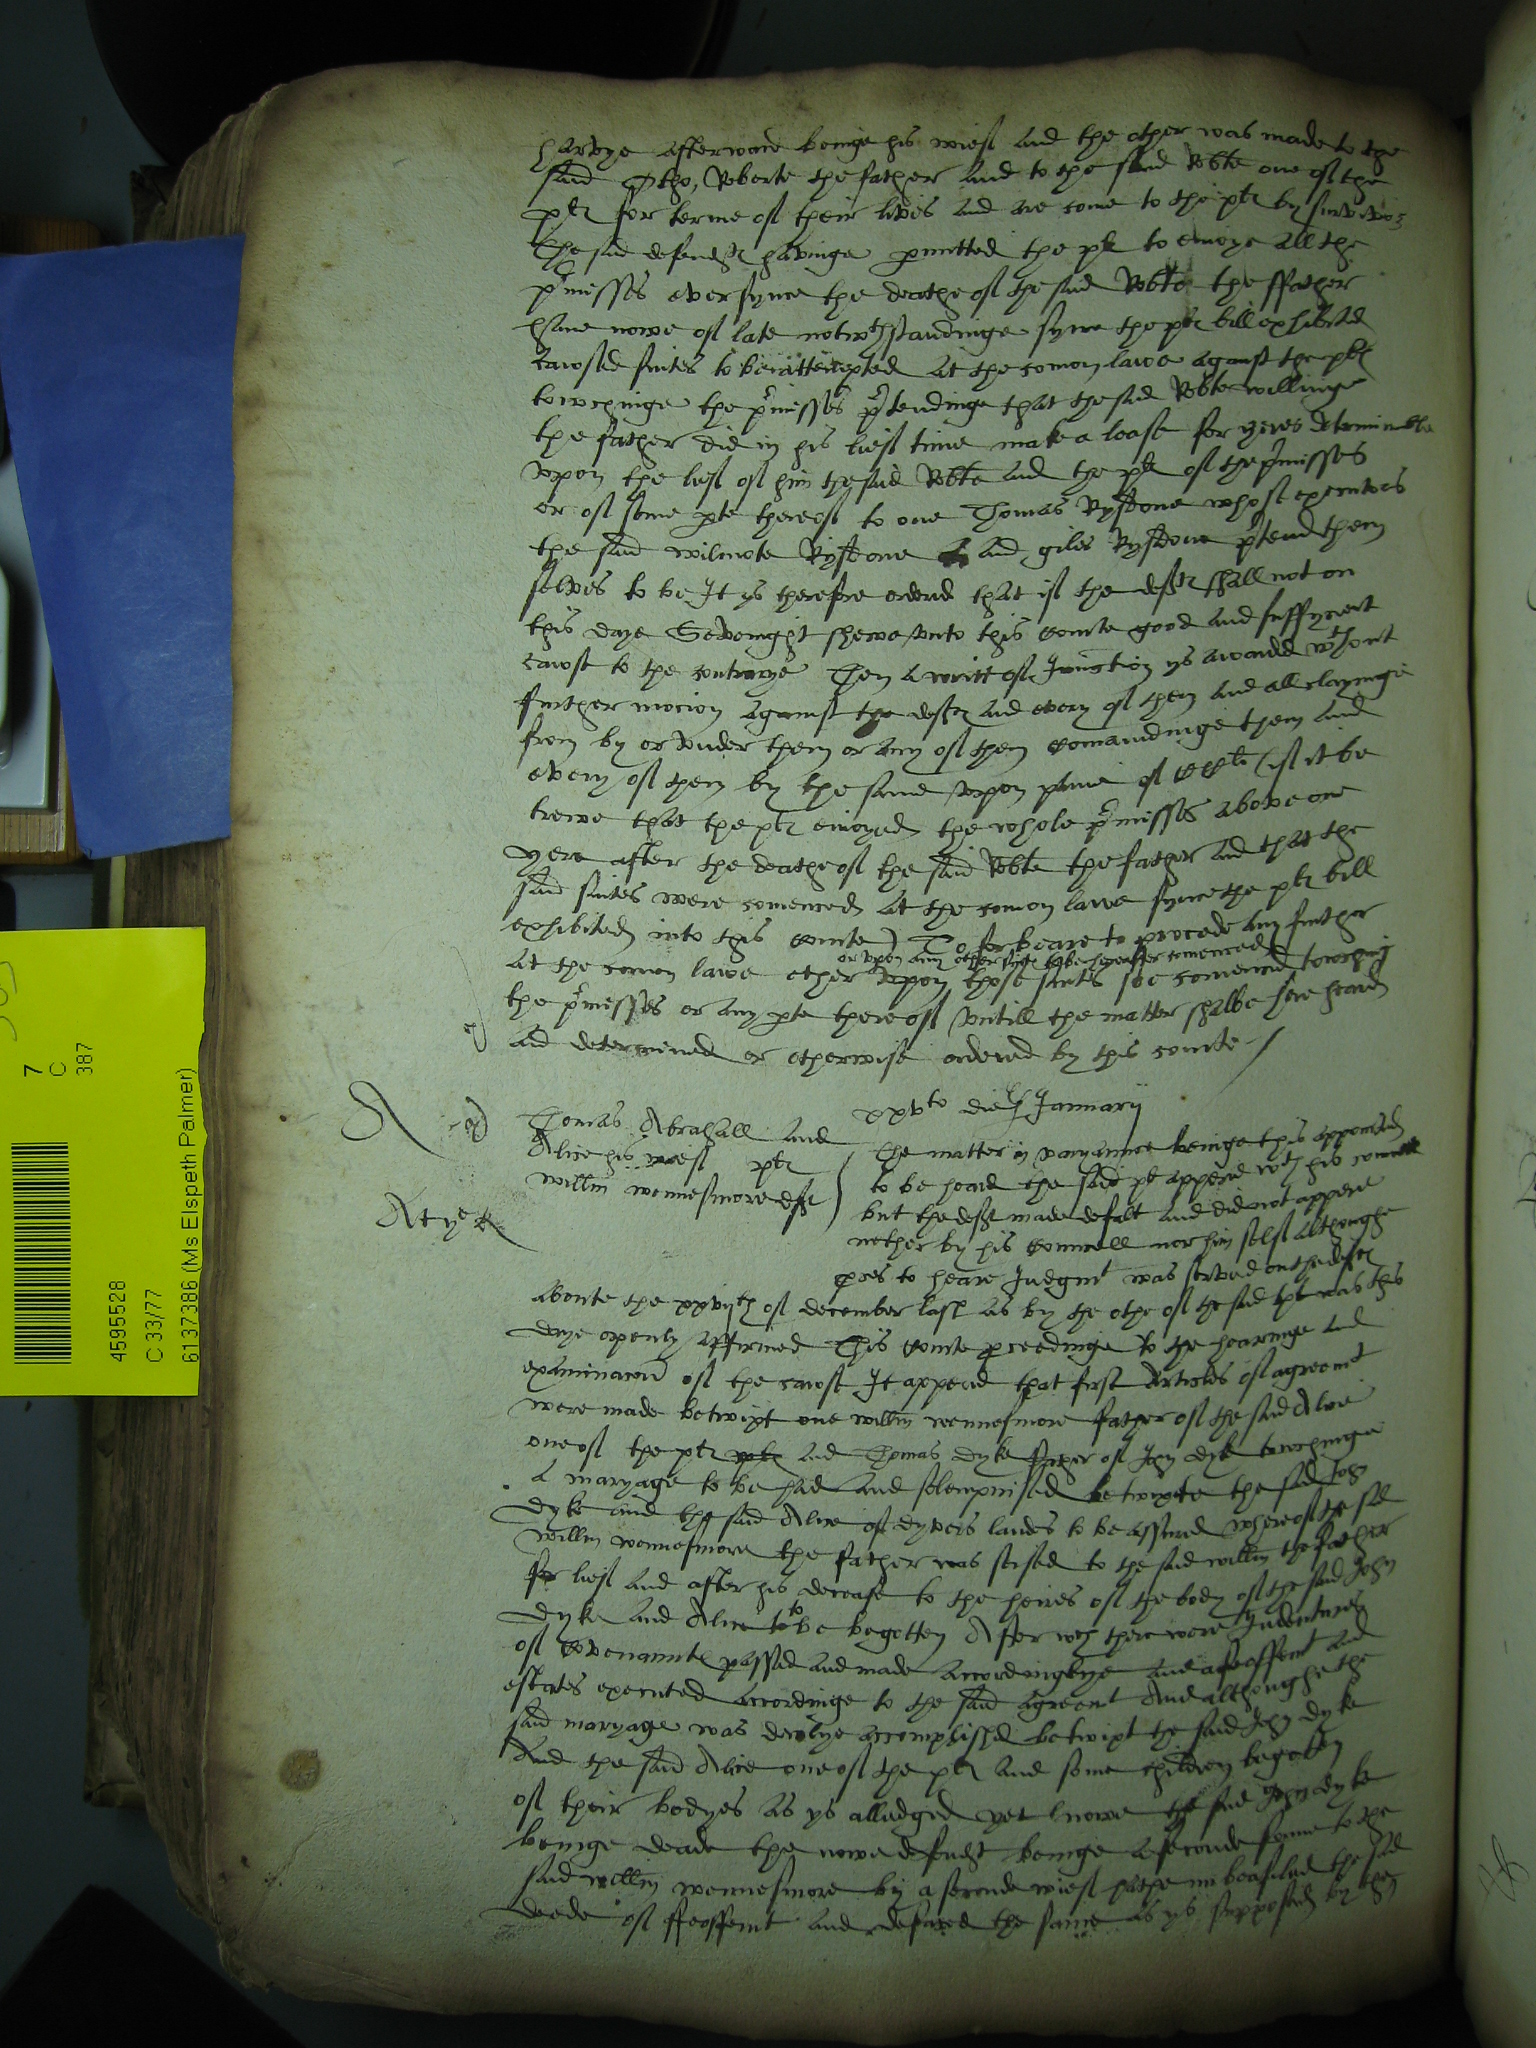 harvye afterward beinge his wief and the other was made to the
said Otho, Roberte the father and to the said Robte one of the
pltes for terme of their lives and are come to the plts by survivor
The said defendts havinge pmitted the plts to enioye all the
pmisses ever synce the deathe of the said Robte the ffather
have nowe of late notwthstandinge synce the plts bill exhibited
cawsed suites to be attempted at the comon lawe against the plts
towchinge the pmisses ptendinge that the said Robte willinge
the father did in his lief time make a lease for yeres determinable
vpon the lief of him the said Robte and the plts of the pmisses
or of some pte thereof to one Thomas Rysdone whose executors
the said wilmote Rysdone and giles Rysdone ptend them
selves to be It ys therefore ordered that if the defts shall not on
this daye Sevenight shewe vnto this courte good and suffycient
cawse to the contrarye Then a writt of Iniunction ys awarded wthout
further mocion against the defts and every of them and all clayminge
from by or vnder them or any of them comaundinge them and
every of them by the same vpon paine of (if it be
trewe that the plts enioyed the whole pmisses above one
yere after the deathe of the said Robte the father and that the
said suites were comenced at the comon lawe synce the plts bill
exhibited into this courte) To forbeare to procede any further
or vpon any other suite to be hereafter comenced
at the comon lawe ether vpon those suites soe comenced towching
the pmisses or any pte thereof vntill the matter shalbe here heard
and determined or otherwise ordered by this courte /
xxvto die Januarij
Thomas Abrahall and
Alice his wief plts
willm wennesmore deft
The matter in varyaunce beinge this appointed
to be heard the said plt appered wth his councell
but the deft made defalt and did not appere
nether by his councell nor him self althoughe
pces to heare Iudgmt was served on the deft
aboute the xxviijth of december last as by the othe of the said plt was this
daye openly affirmed This courte pceedinge to the hearinge and
examinacon of the cawse It appered that first Articles of agreemt
were made betwixt one willm wennesmore father of the said Alice
one of the plts and Thomas dyke father of John dyke towchinge
a maryage to be had and solempnised betwixte the said John
dyke and the said Alice of dyvers landes to be assured whereof the said
willm wennesmore the father was seised to the said willm the father
for lief and after his decease to the heires of the body of the said John
dyke and Alice to be begotten After wch there were Indentures
of covenauntes passed and made accordinglye and a feoffemt and
estates executed accordinge to the said agreemt And althoughe the
said maryage was dewlye accomplished betwixt the said John dyke
And the said Alice one of the plts and some children begotten
of their bodyes as ys alledged yet nowe the said John dyke
beinge deade the nowe defendt beinge a seconde sonne to the
said willm wennesmore by a seconde wief hathe imbeasiled the said
deede of ffeoffemt and defaced the same as ys supposed by then
7
C
387
4595528
C 33/77
6137386 (Ms Elspeth Palmer)